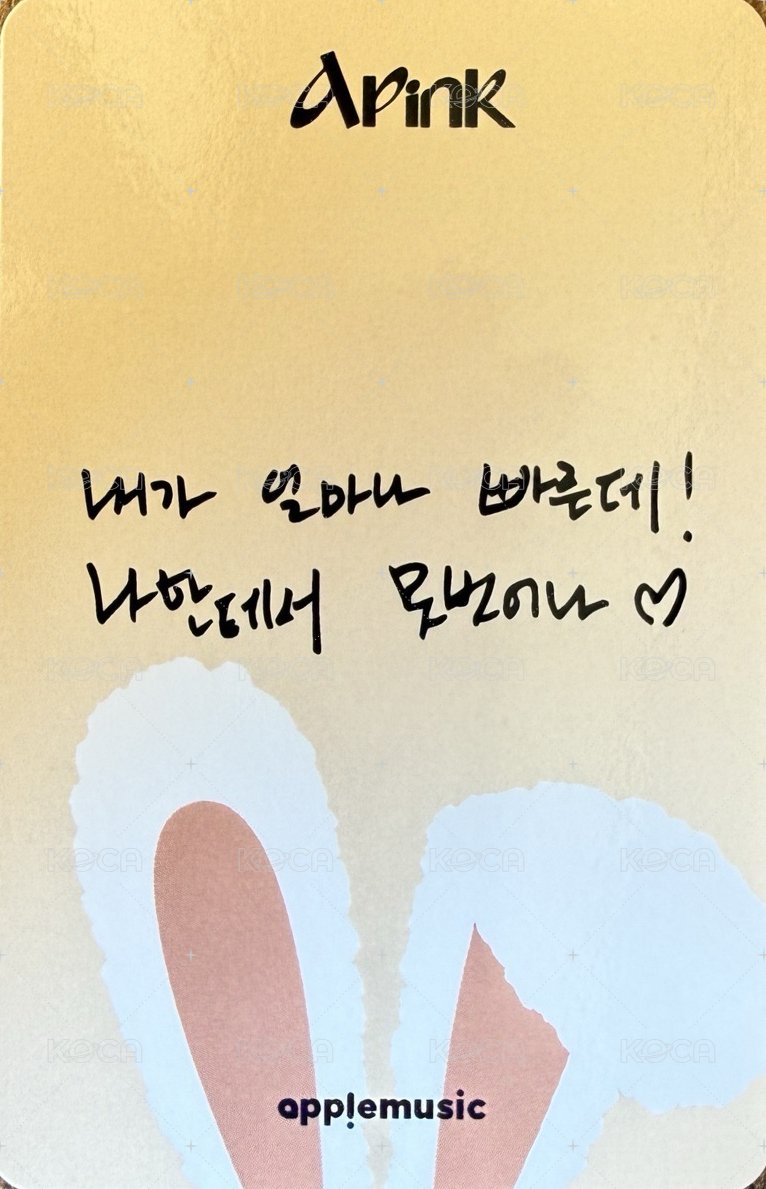 Apink
내가 얼마나 빠른데!
나한테서 못벗어나 ♡
app!emusic